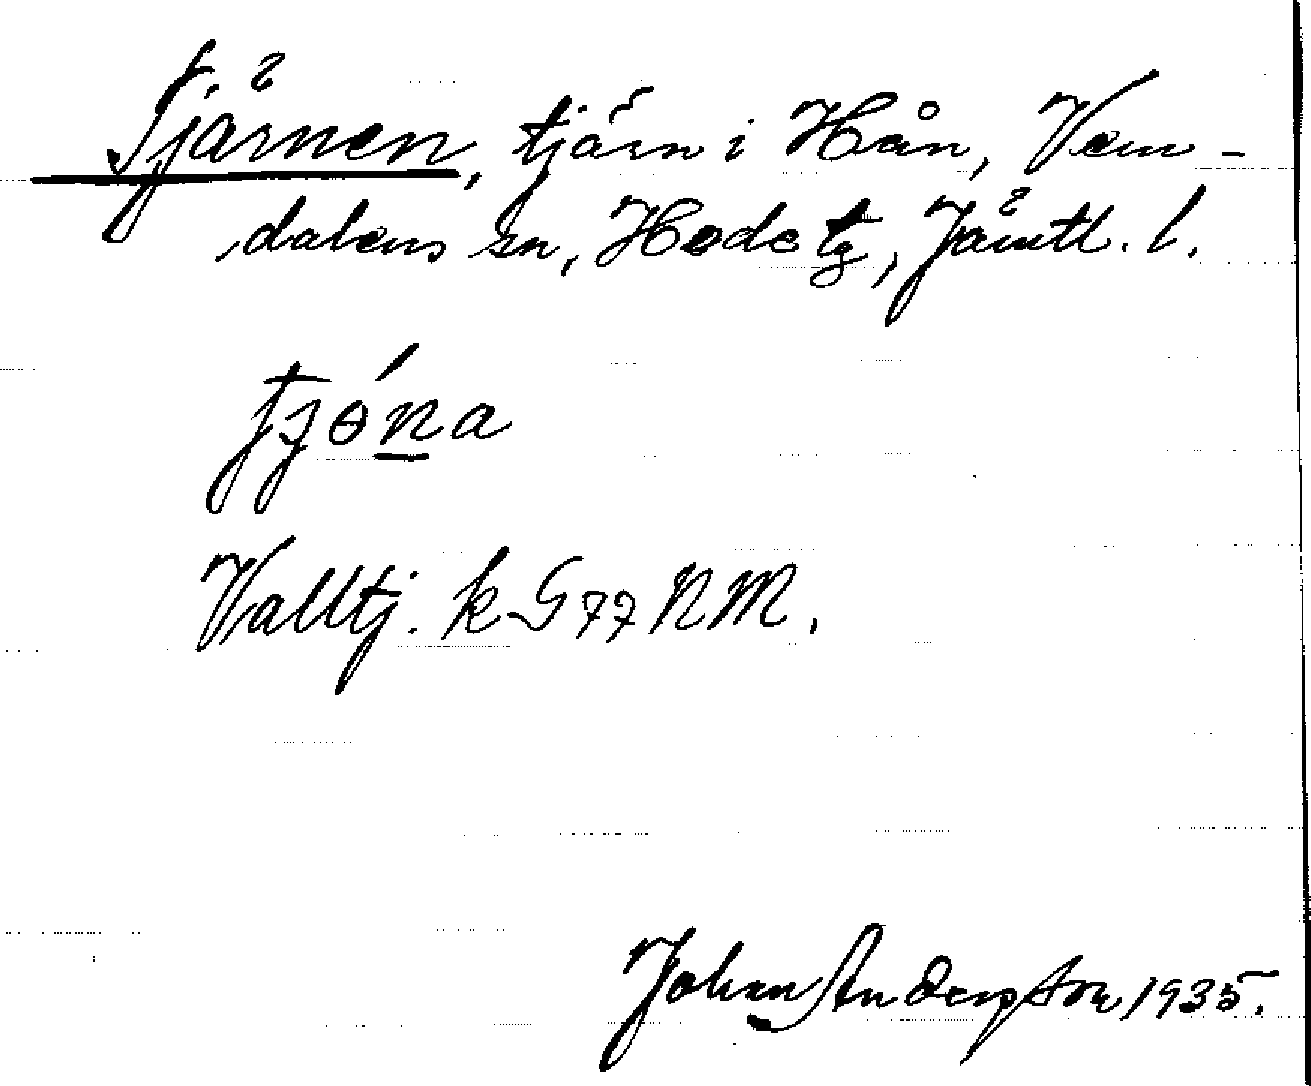 Tjärnen, tjärn i Hån, Vem-
dalens sn, Hede tg, Jämtl. l.
tjóna
Valltj. k G 77 NM.
Johan Andersson 1935.